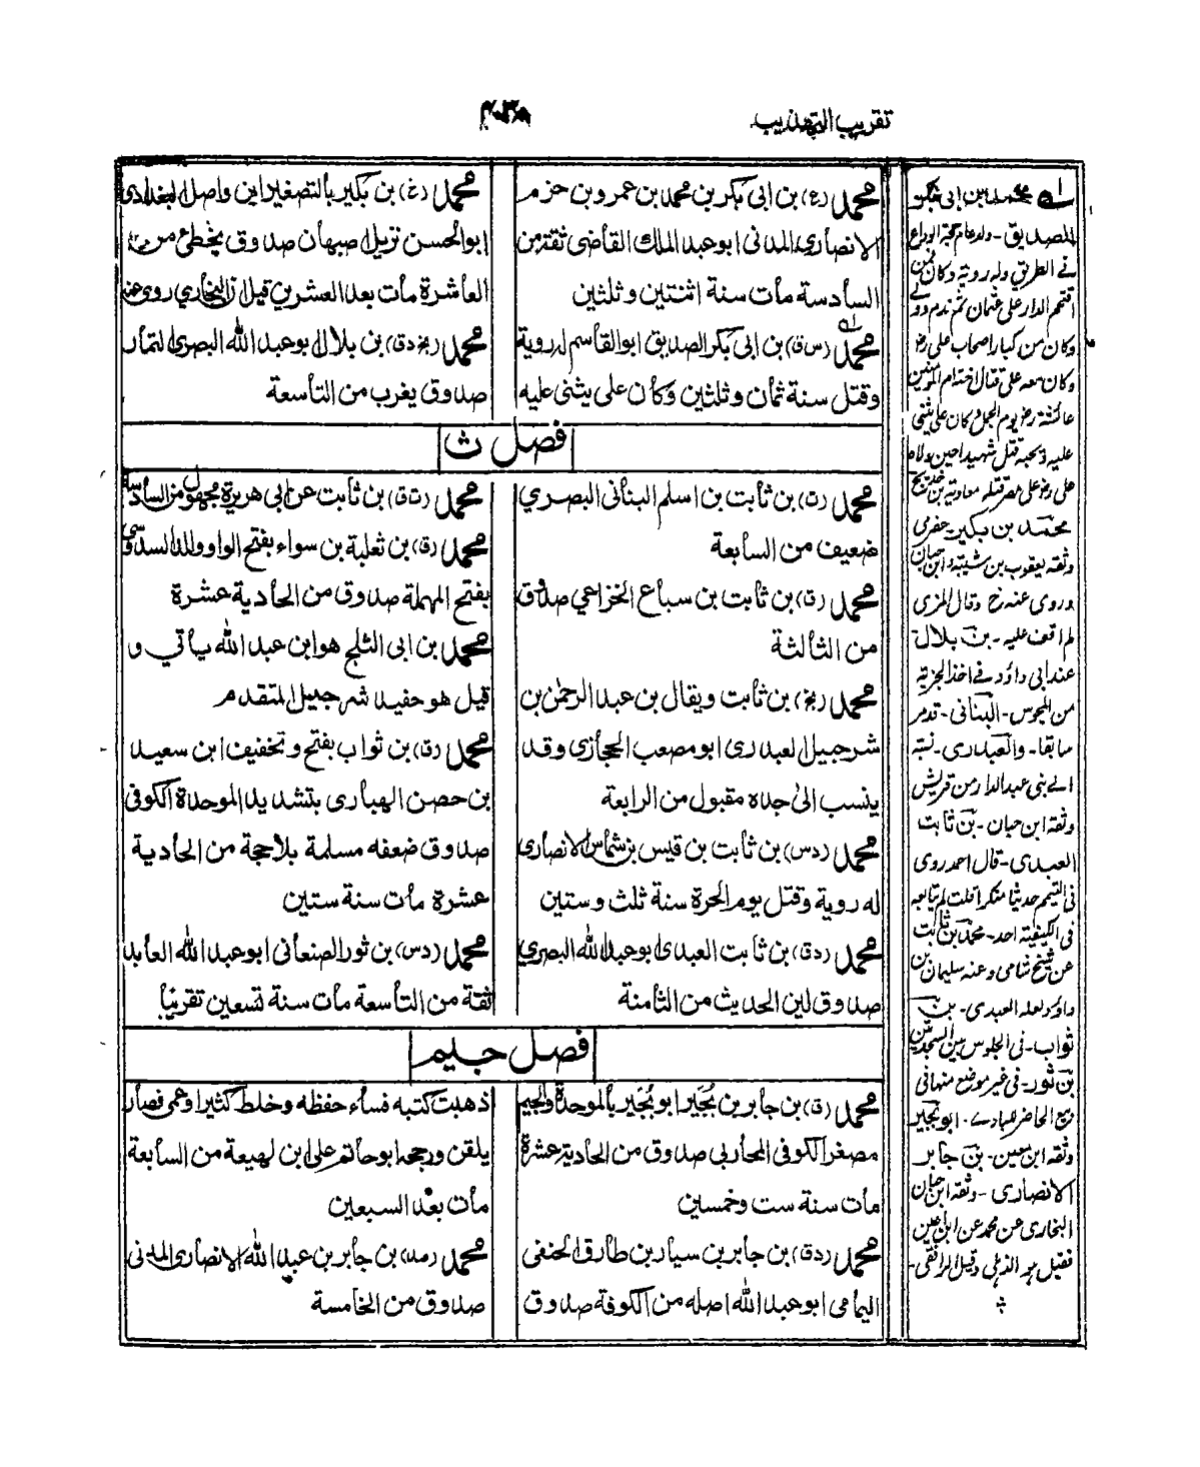 تقريب التهذيب
محمد (ع) بن ابى بكر بن محمد بن عمرو بن حزم
الانصارى المدنى ابو عبد الملك القاضى ثقة من
السادسة مات سنة اثنتين وثلثين
محمد (س ق) بن ابى بكر الصديق ابو القاسم له روية
وقتل سنة ثمان وثلثين وكان على يثنى عليه
محمد (غ) بن بكير بالتصغير ابن واصل البغدادى
ابو الحسن نزيل اصبهان صدوق يخطئ من
العاشرة مات بعد العشرين قيل ان البخاري روى عنه
محمد (بخ د ق) بن بلال ابو عبد الله البصرى التمار
صدوق يغرب من التاسعة
فصل ث
محمد (ت) بن ثابت بن اسلم البنانى البصري
ضعيف من السابعة
محمد (ق) بن ثابت بن سباع الخزاعي صدوق
من الثالثة
محمد (بخ) بن ثابت ويقال بن عبد الرحمن بن
شرحبيل العبدرى ابو مصعب الحجازى وقد
ينسب الى جده مقبول من الرابعة
محمد (د س) بن ثابت بن قيس بن شماس الانصارى
له روية وقتل يوم الحرة سنة ثلث وستين
محمد (د ق) بن ثابت العبدى ابو عبد الله البصري
صدوق لين الحديث من الثامنة
محمد (ت ق) بن ثابت عن ابى هريرة مجهول من السادسة
محمد (ق) بن ثعلبة بن سواء بفتح الواو والمد السدوسى
بفتح المهملة صدوق من الحادية عشرة
محمد بن ابى الثلج هو ابن عبد الله يأتي و
قيل هو حفيد شرحبيل المتقدم
محمد (ق) بن ثواب بفتح وتخفيف ابن سعيد
بن حصن الهبارى بتشديد الموحدة الكوفى
صدوق ضعفه مسلمة بلا حجة من الحادية
عشرة مات سنة ستين
محمد (د س) بن ثور الصنعانى ابو عبد الله العابد
ثقة من التاسعة مات سنة تسعين تقريبا
فصل جيم
محمد (ق) بن جابر بن بُجَير ابو بُجَير بالموحدة والجيم
مصغر الكوفى المحاربى صدوق من الحادية عشرة
مات سنة ست وخمسين
محمد (د ق) بن جابر بن سيار بن طارق الحنفى
اليمامى ابو عبد الله اصله من الكوفة صدوق
ذهبت كتبه فساء حفظه وخلط كثيرا وعمى فصار
يلقن ورجحه ابو حاتم على ابن لهيعة من السابعة
مات بعد السبعين
محمد (مد) بن جابر بن عبد الله الانصارى المدنى
صدوق من الخامسة
له محمد بن ابى بكر
الصديق - ولد عام حجة الوداع
فى الطريق وله روية وكان ممن
اقتحم الدار على عثمان ثم ندم
وكان من كبار اصحاب على رض
وكان معه على قتال ام المؤمنين
عائشة رض يوم الجمل وكان على يثنى
عليه قتل شهيدا حين ولاه
على رض على مصر قتله معاوية بن خديج
محمد بن بكير - حضرمى
وثقه يعقوب بن شيبة وابن حبان
وروى عنه خ وقال المزى
لم اقف عليه - بن بلال
عند ابى داؤد فى اخذ الجزية
من المجوس - البنانى - تقدم
سابقا - والعبدرى - نسبة
الى بنى عبد الدار من قريش
وثقه ابن حبان - بن ثابت
العبدى - قال احمد روى
فى التيمم حديثا منكرا قلت لم يتابعه
فى الكيفية احد - محمد بن ثابت
عن شيخ شامى وعنه سليمان بن
داؤد لعله العبدى - بن
ثواب - فى الجلوس بين السجدتين
بن ثور - فى غير موضع منها فى
بيع الحاضر للبادى - ابو بجير
وثقه ابن معين - بن جابر
الانصارى - وثقه ابن حبان
البخارى عن محمد عن ابن اعين
فقيل هو الذهلى وقيل الرافقى -